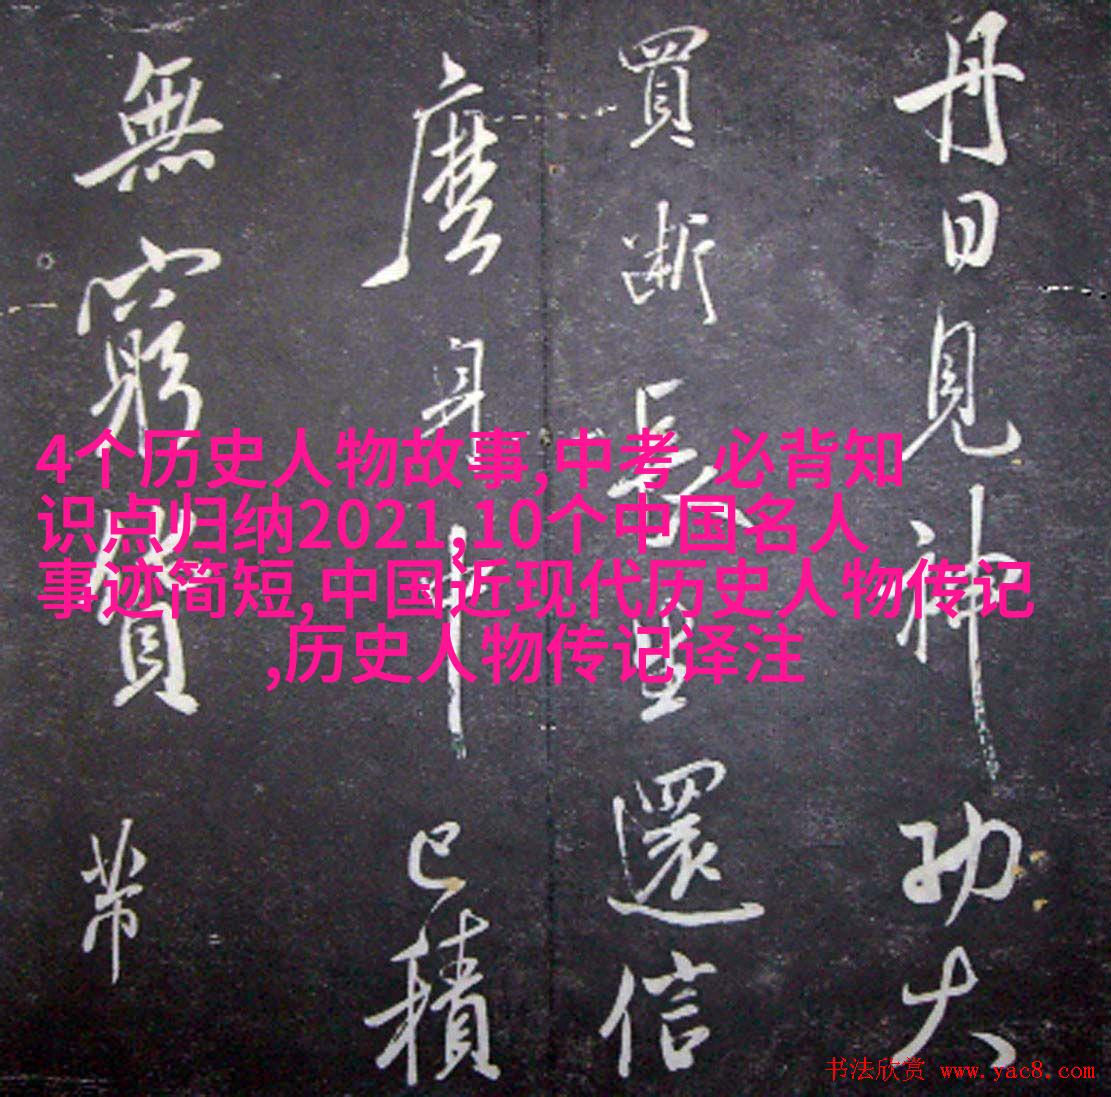 丹日見神功大
買斷長生還信
歷身計已積
無窮貲帶
4个历史人物故事,中考 必背知
识点归纳2021,10个中国名人
事迹简短,中国近现代历史人物传记
,历史人物传记译注
书法欣赏 www.yac8.com